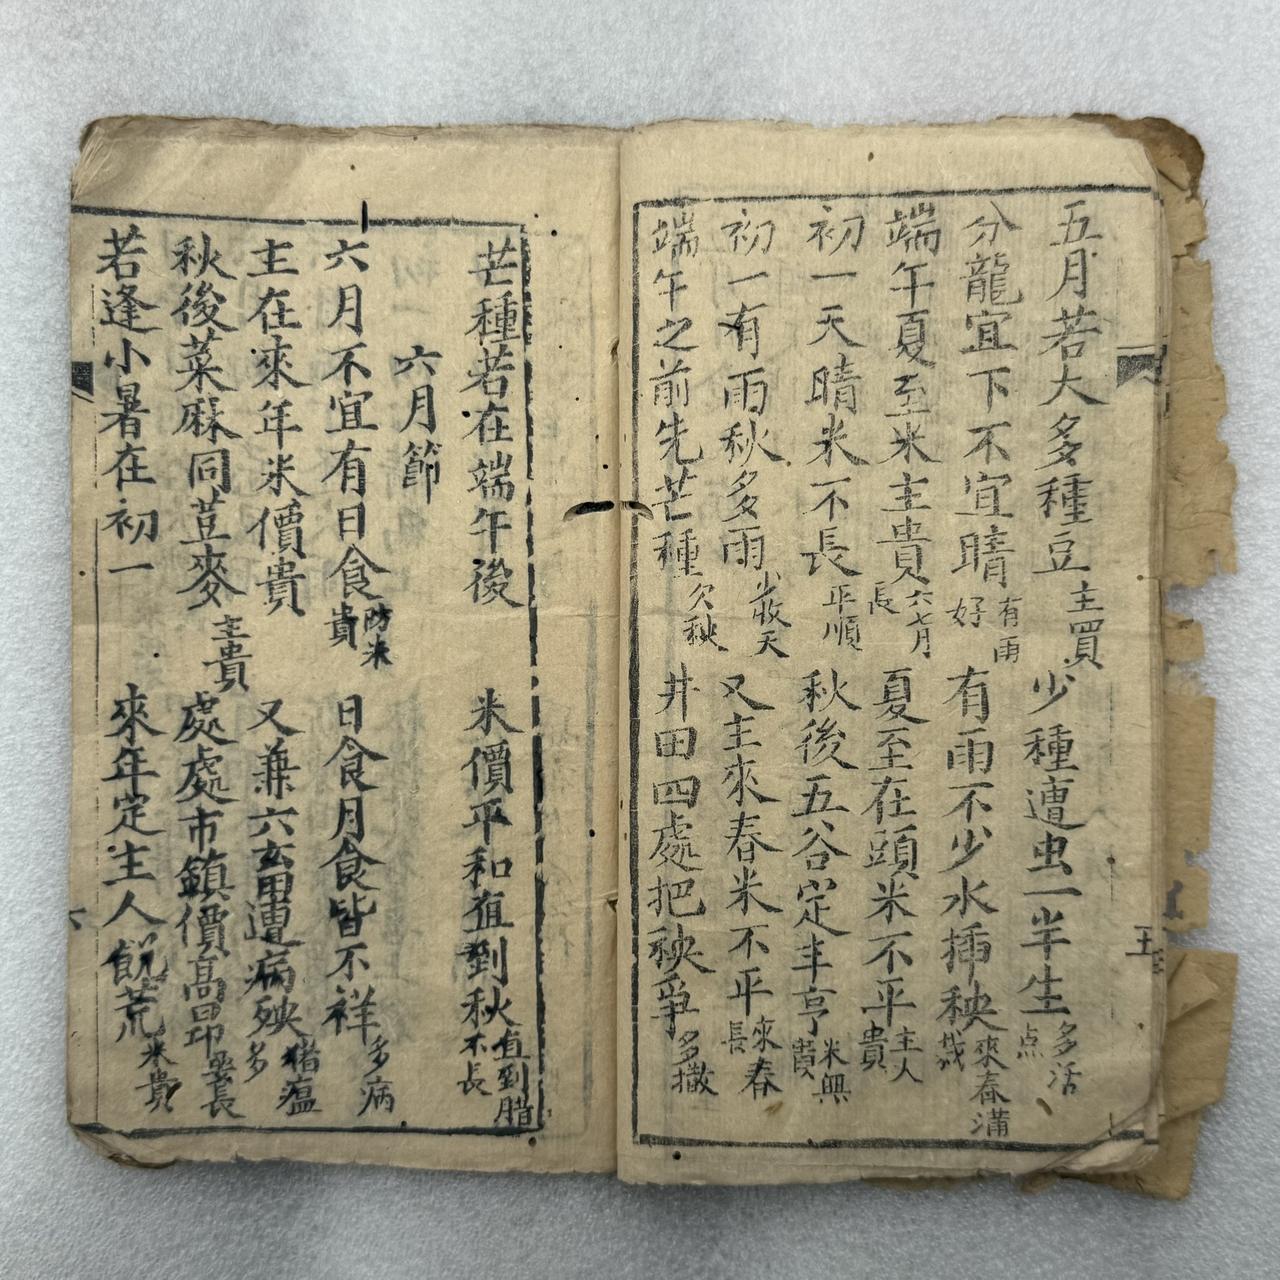 五月若大多種豆 主買 少種遭虫一半生 多活点
分龍宜下不宜晴 有雨好 有雨不少水揷秧 來春滿
端午夏至米主貴 六七月長 夏至在頭米不平 主人貴
初一天晴米不長 平順 秋後五谷定丰亨 米興
初一有雨秋多雨 少收天 又主來春米不平 來春長
端午之前先芒種 欠秧 井田四處把秧爭 多撒
五
芒種若在端午後 米價平和直到秋 直到腊不長
六月節
六月不宜有日食 防米貴 日食月食皆不祥 多病
主在來年米價貴 又兼六畜遭病殃 猪瘟多
秋後菜麻同荳麥 主貴 處處市鎮價高昂 長
若逢小暑在初一 來年定主人飢荒 米貴
六